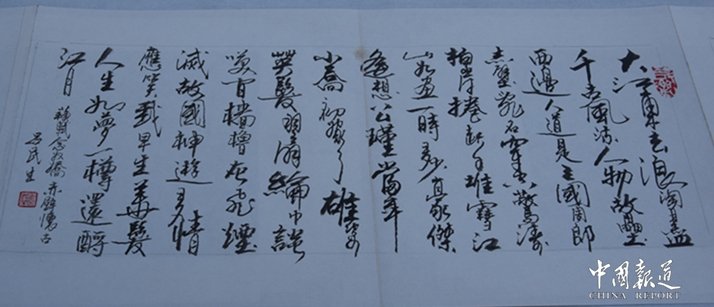 大江東去浪淘盡
千古風流人物故壘
西邊人道是三國周郎
赤壁亂石穿空驚濤
拍岸捲起千堆雪江
山如畫一時多少豪傑
遙想公瑾當年
小喬初嫁了雄姿
英發羽扇綸巾談
笑間檣櫓灰飛煙
滅故國神遊多情
應笑我早生華髮
人生如夢一樽還酹
江月
蘇軾念奴嬌赤壁懷古
民生
中國報道
CHINA REPORT